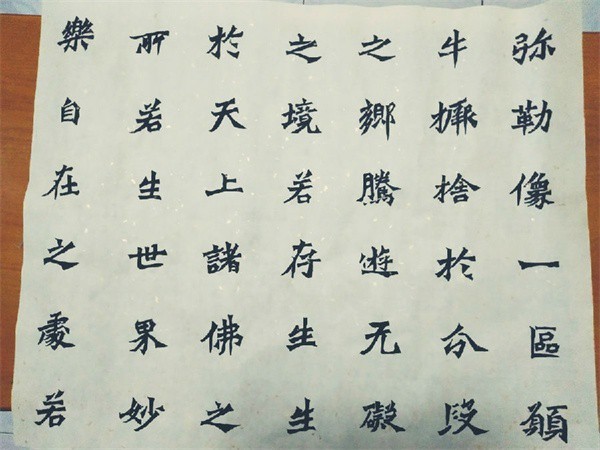 弥勒像一區願
牛橛捨於分段
之鄉騰遊无礙
之境若存生生
於天上諸佛之
所若生世界妙
樂自在之處若